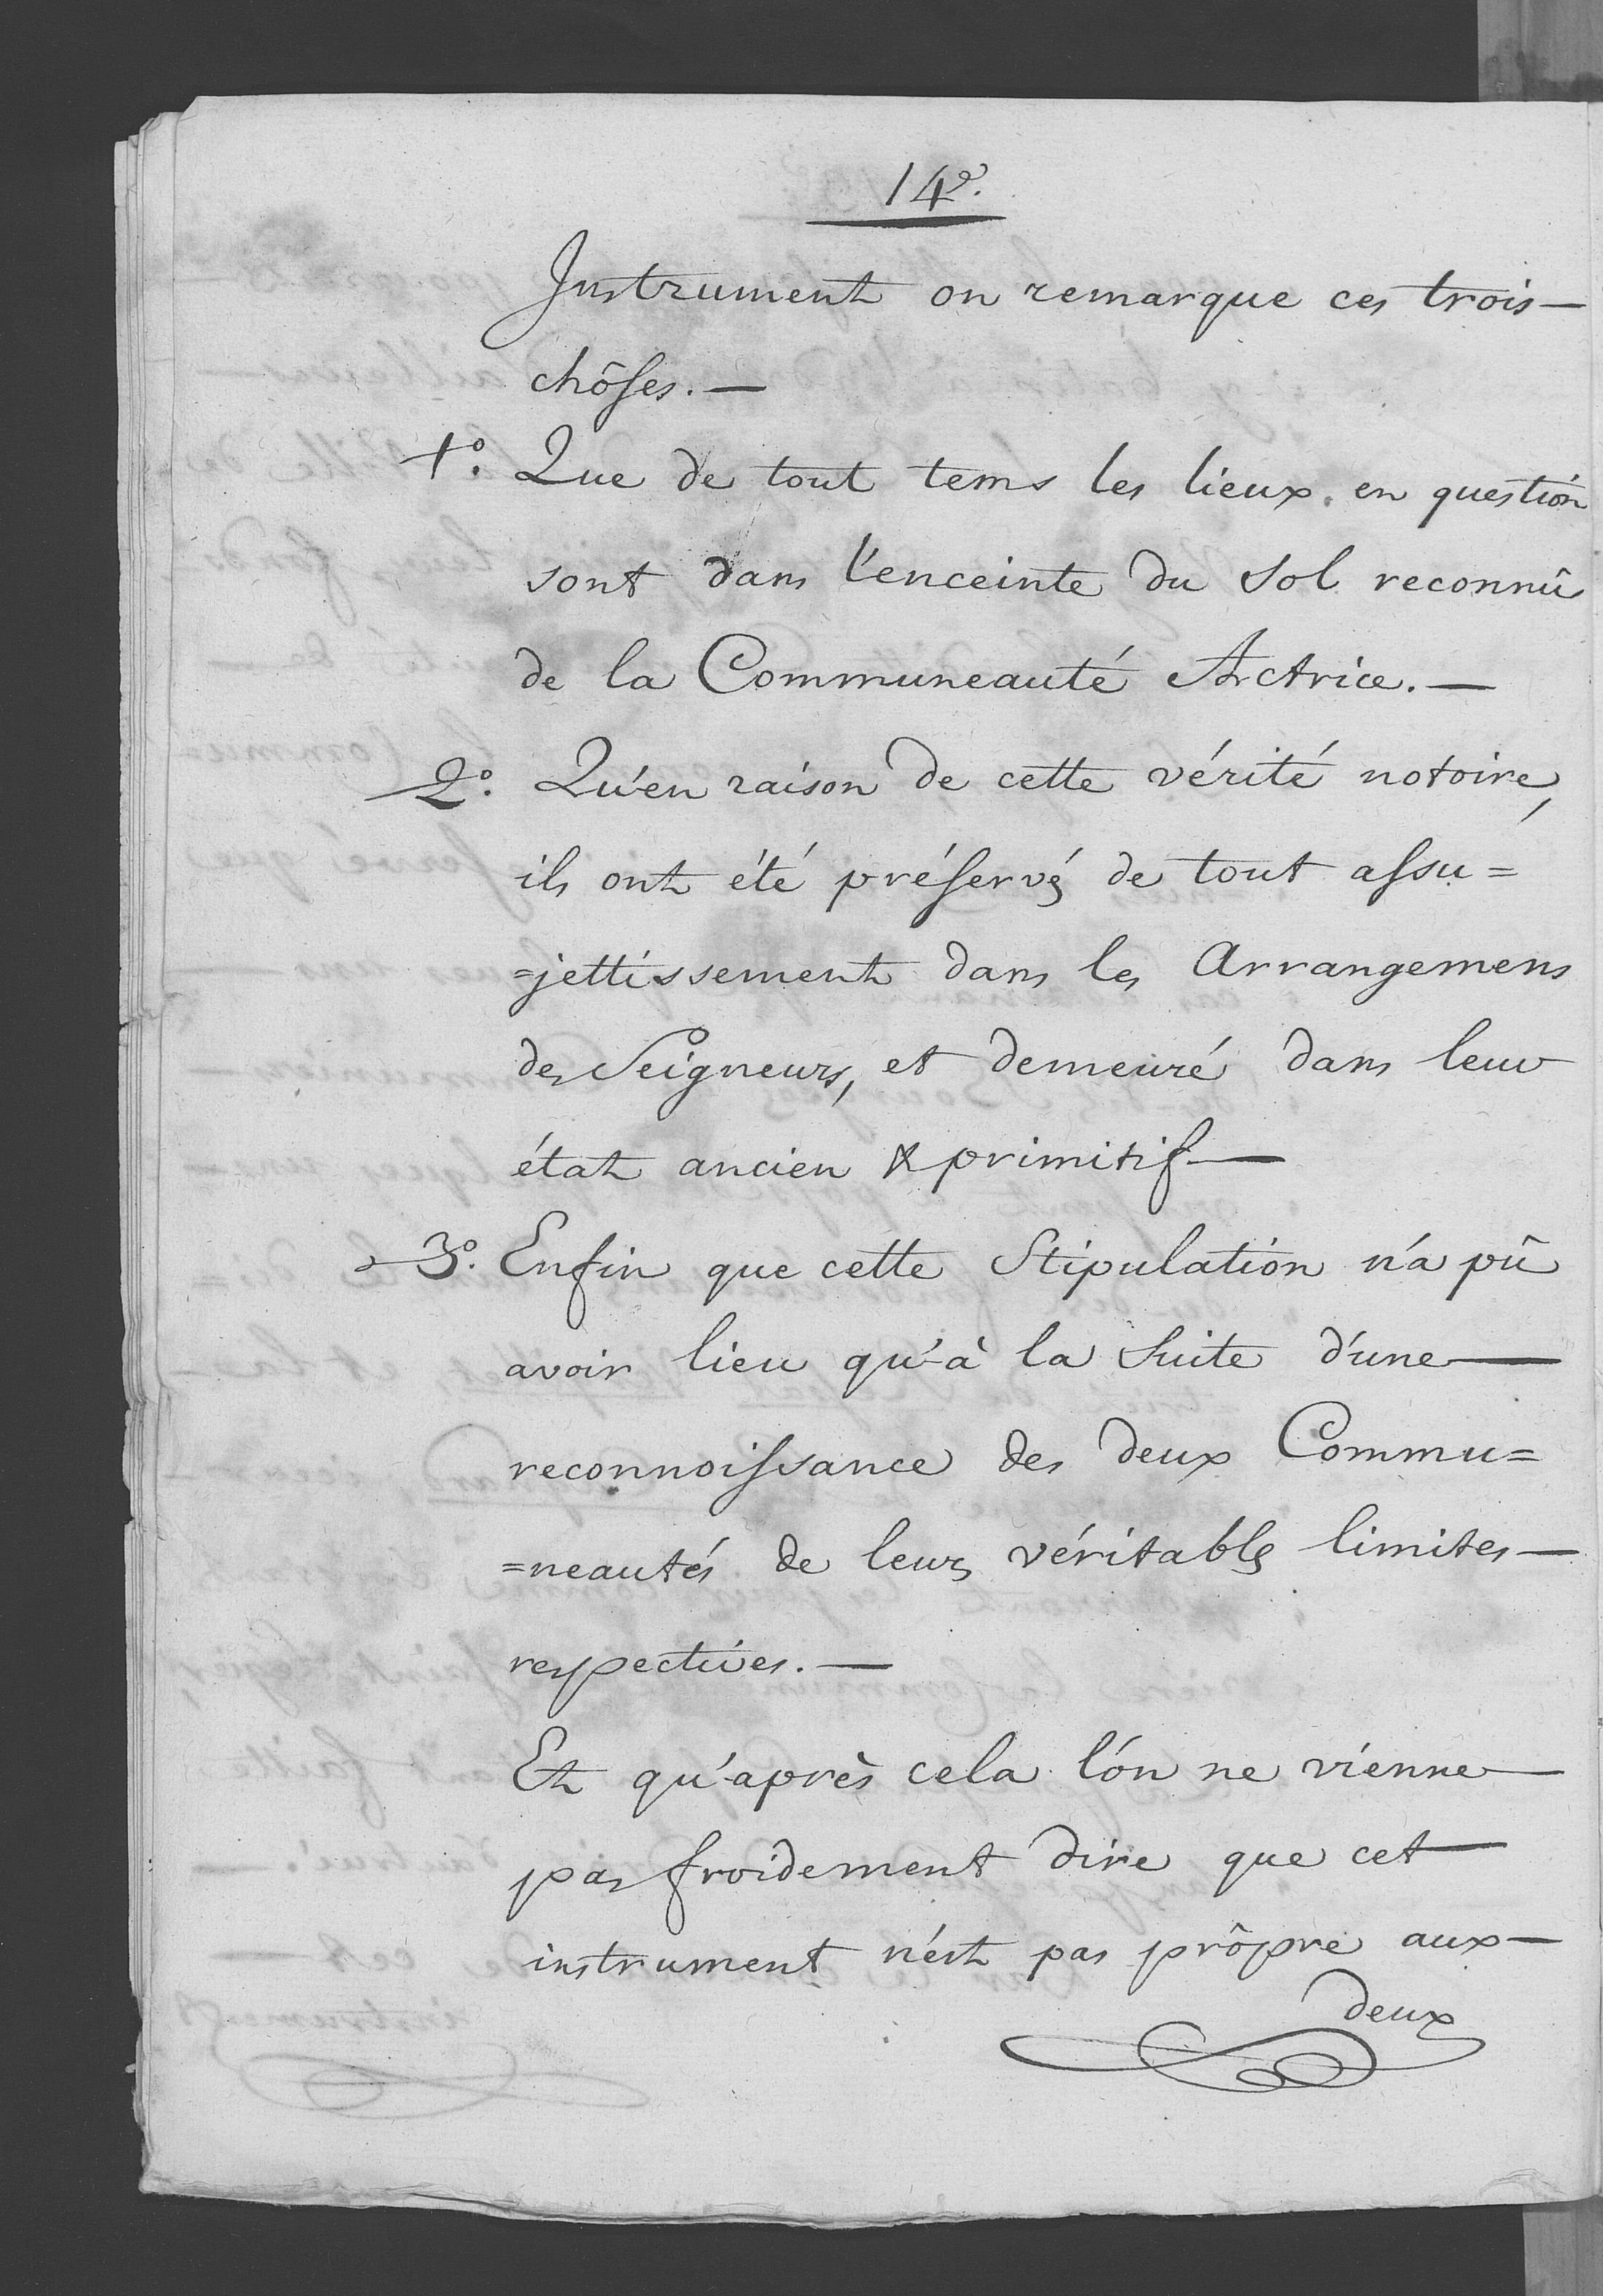 14e.
Instrument on remarque ces trois—
chôses.—
1o. Que de tout tems les lieux en question
sont dans l'enceinte du sol reconnû
de la Communeauté Actrice.—
2o. Qu'en raison de cette vérité notoire,
ils ont été préservés de tout assu=
=jettissement dans les Arrangemens
des Seigneurs, et demeuré dans leur
état ancien & primitif—
3o. Enfin que cette Stipulation n'a pû
avoir lieu qu'à la Suite d'une—
reconnoissance des deux Commu=
=neautés de leurs véritables limites—
respectives.—
Et qu'après cela l'on ne vienne—
pas froidement dire que cet—
instrument n'est pas prôpre aux—
deux